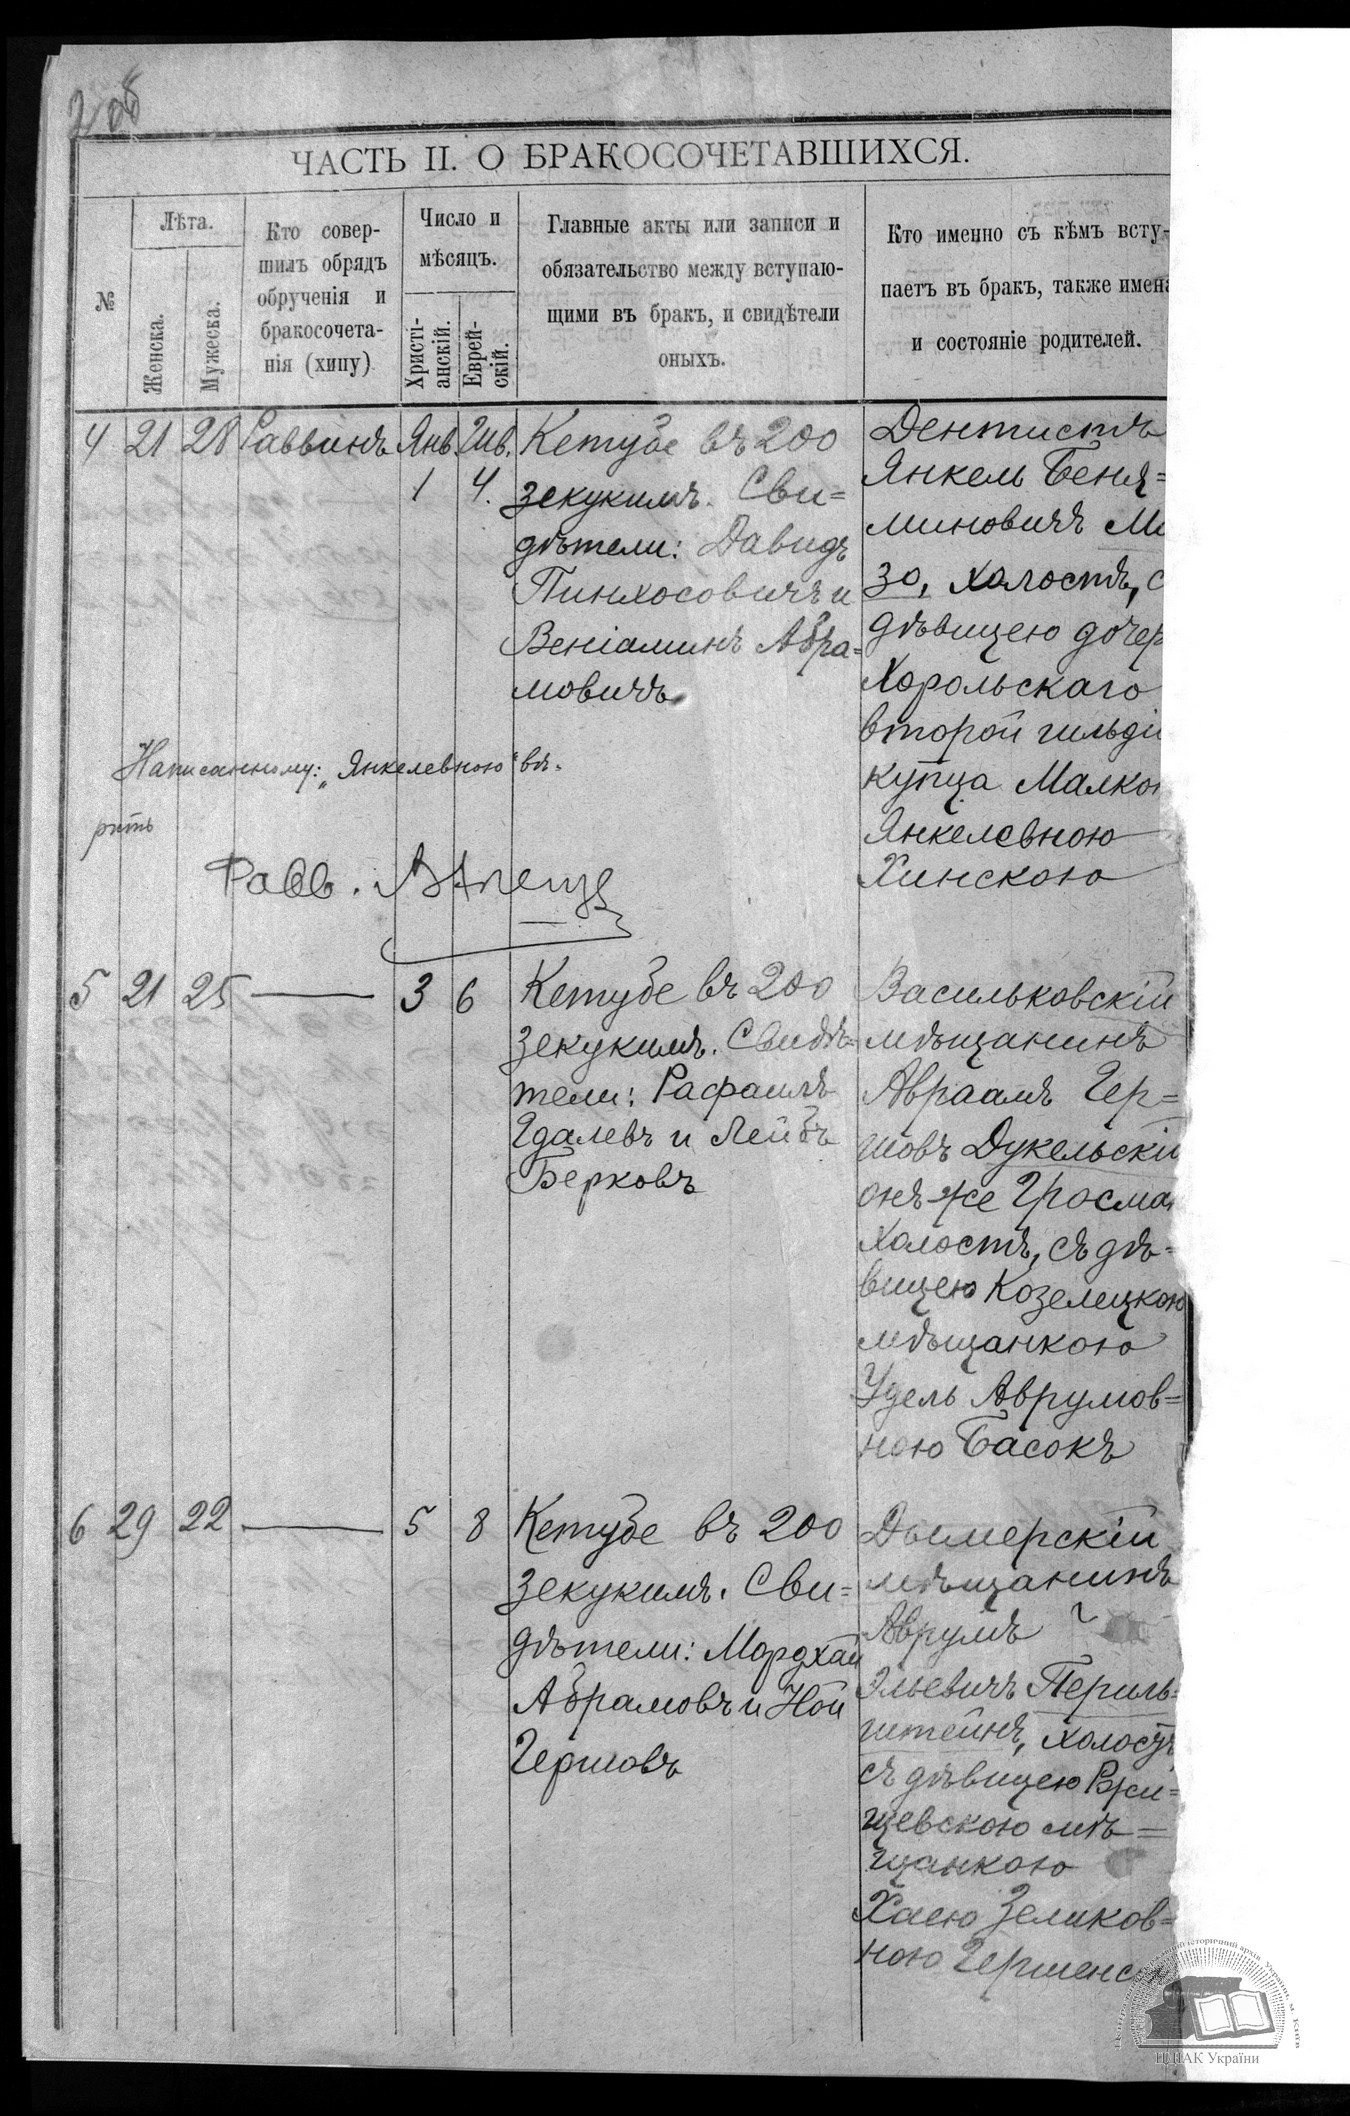 208
ЧАСТЬ II. О БРАКОСОЧЕТАВШИХСЯ.
№
Лѣта.
Женска.
Мужеска.
Кто совер-
шилъ обрядъ
обрученія и
бракосочета-
нія (хипу)
Число и
мѣсяцъ.
Христі-
анскій.
Еврей-
скій.
Главные акты или записи и
обязательство между вступаю-
щими въ бракъ, и свидѣтели
оныхъ.
Кто именно съ кѣмъ всту-
паетъ въ бракъ, также имена
и состояніе родителей.
4 21 28 Раввинъ Янв. Шв.
1 4.
Кетубе въ 200
зекукимъ. Сви=
дѣтели: Давидъ
Пинхосовичъ и
Веніаминъ Абра=
мовичъ
Дентистъ
Янкель Беня=
миновичъ
зо, холостъ, с
дѣвицею дочер
Хорольскаго
второй гильдіи
купца Малкою
Янкелевною
Хинскою
Написанному: „Янкелевною" вѣ-
рить
Равв.
5 21 25 — 3 6
Кетубе въ 200
зекукимъ. Свидѣ=
тели: Рафаилъ
Гдалевъ и Лейбъ
Берковъ
Васильковскій
мѣщанинъ
Авраамъ Гер=
шовъ Дукельскій
онъ-же Гросман
холостъ, съ дѣ=
вицею Козелецкою
мѣщанкою
Удель Аврумов=
ною Басокъ
6 29 22 — 5 8
Кетубе въ 200
зекукимъ. Сви=
дѣтели: Мордхай
Абрамовъ и Ной
Гершовъ
Дымерскій
мѣщанинъ
Аврумъ
Эльевичъ Перель=
штейнъ, холостъ
съ дѣвицею Ржи=
щевскою мѣ=
щанкою
Хаею Зеликов=
ною Гершенсон
ЦДІАК України